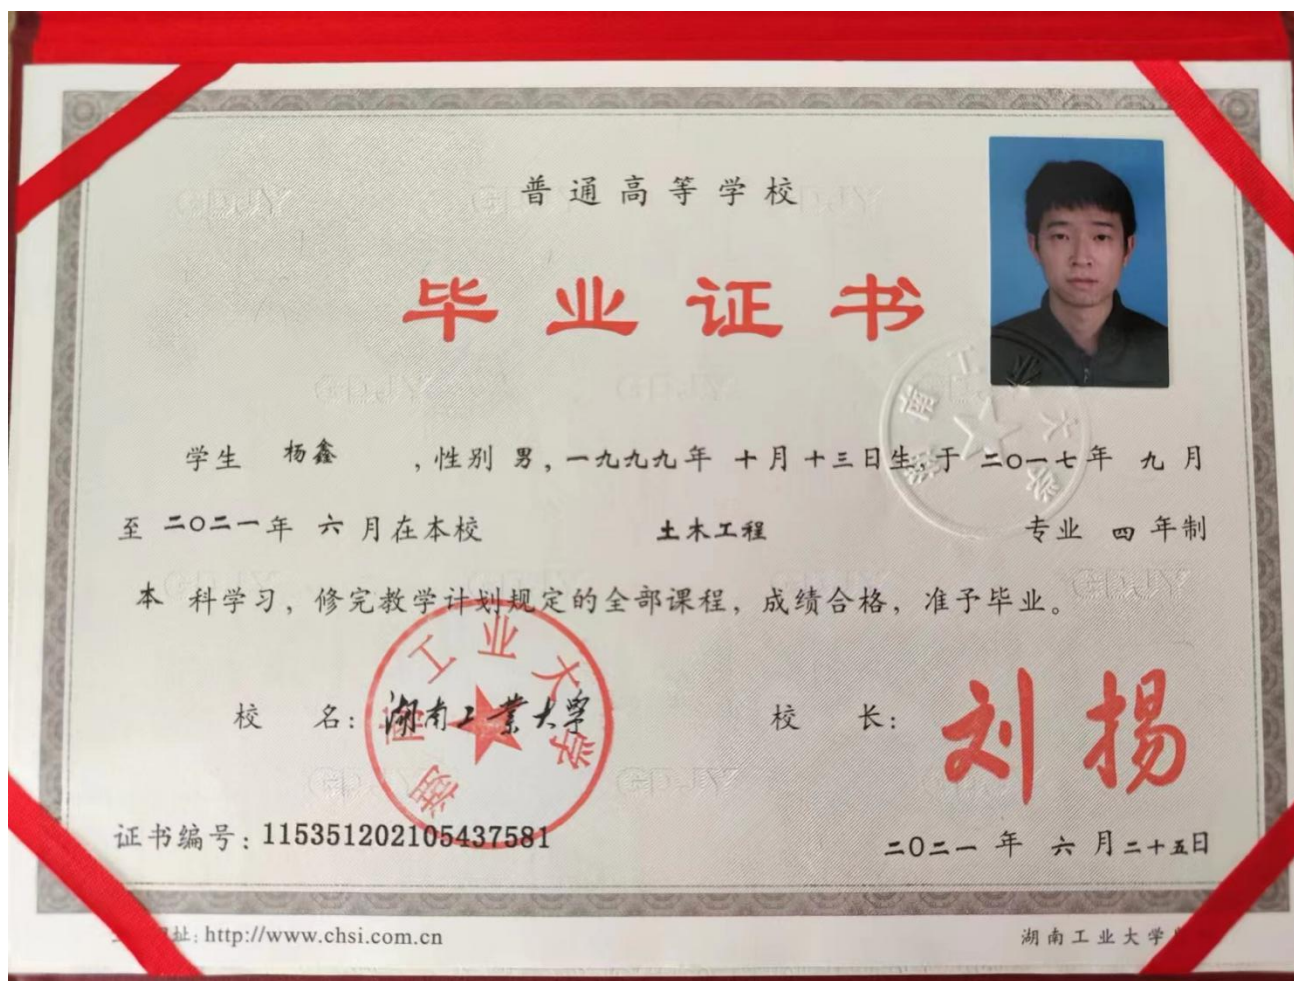 普通高等学校
毕业证书
学生 杨鑫 ,性别 男,一九九九年 十月十三日生,于 二〇一七年 九月
至 二〇二一年 六月在本校 土木工程 专业 四年制
本 科学习,修完教学计划规定的全部课程,成绩合格,准予毕业。
校 名: 湖南工业大学
校 长: 刘扬
证书编号: 115351202105437581
二〇二一年 六月二十五日
址: http://www.chsi.com.cn
湖南工业大学
湖南工业大学
湖南工业大学
YLGD